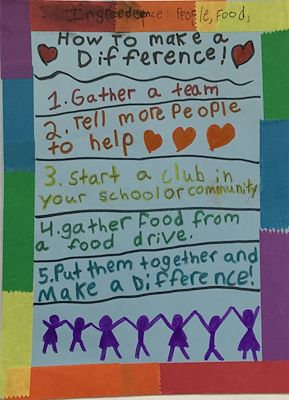 Ingredeence: People, Food,
How To make a
Difference!
1. Gather a team
2. Tell more People
to help
3. Start a club in
your school or community
4. gather Food From
a food drive.
5. Put them together and
Make a Difference!